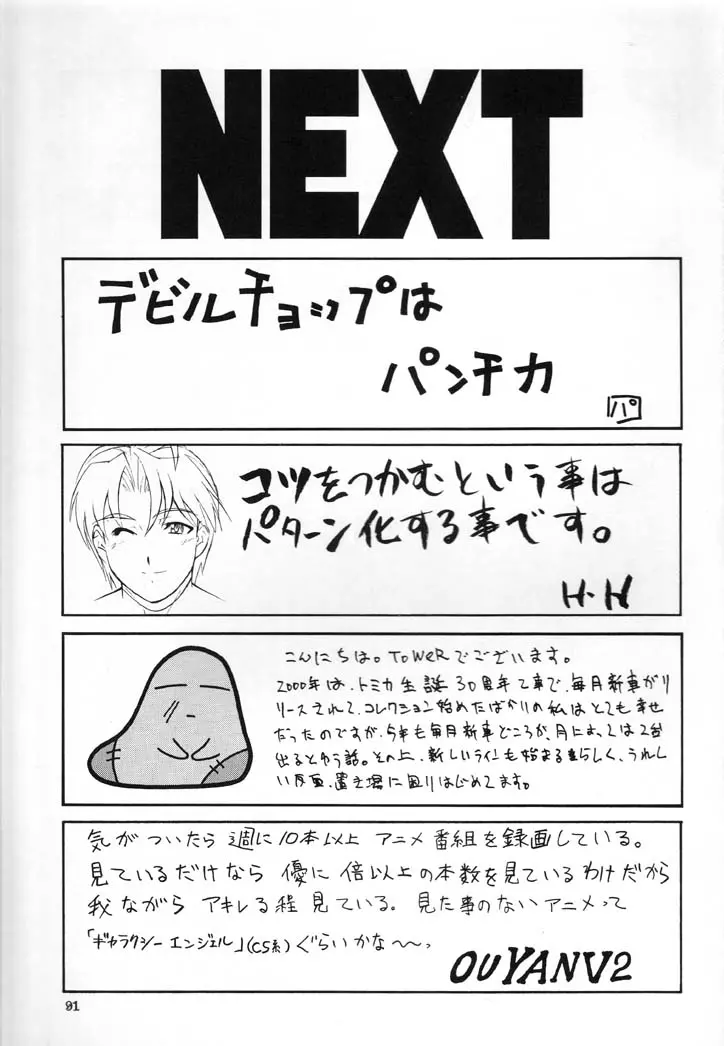 NEXT
デビルチョップは
パンチ力
パ
コツをつかむという事は
パターン化する事です。
H・H
こんにちは。TOWeRでございます。
2000年は、トミカ生誕30周年て事で、毎月新車がリ
リースされて、コレクション始めたばかりの私はとても幸せ
だったのですが、今年も毎月新車どころか、月によっては2台
出るとゆう話。その上、新しいラインも始まるらしく、うれし
い反面、置き場に困りはじめてます。
気がついたら 週に10本以上 アニメ番組を録画している。
見ているだけなら 優に 倍以上の本数を見ているわけだから
我ながら アキレる程 見ている。見た事のないアニメって
「ギャラクシーエンジェル」(CS系)ぐらいかな〜〜っ
OUYANV2
91